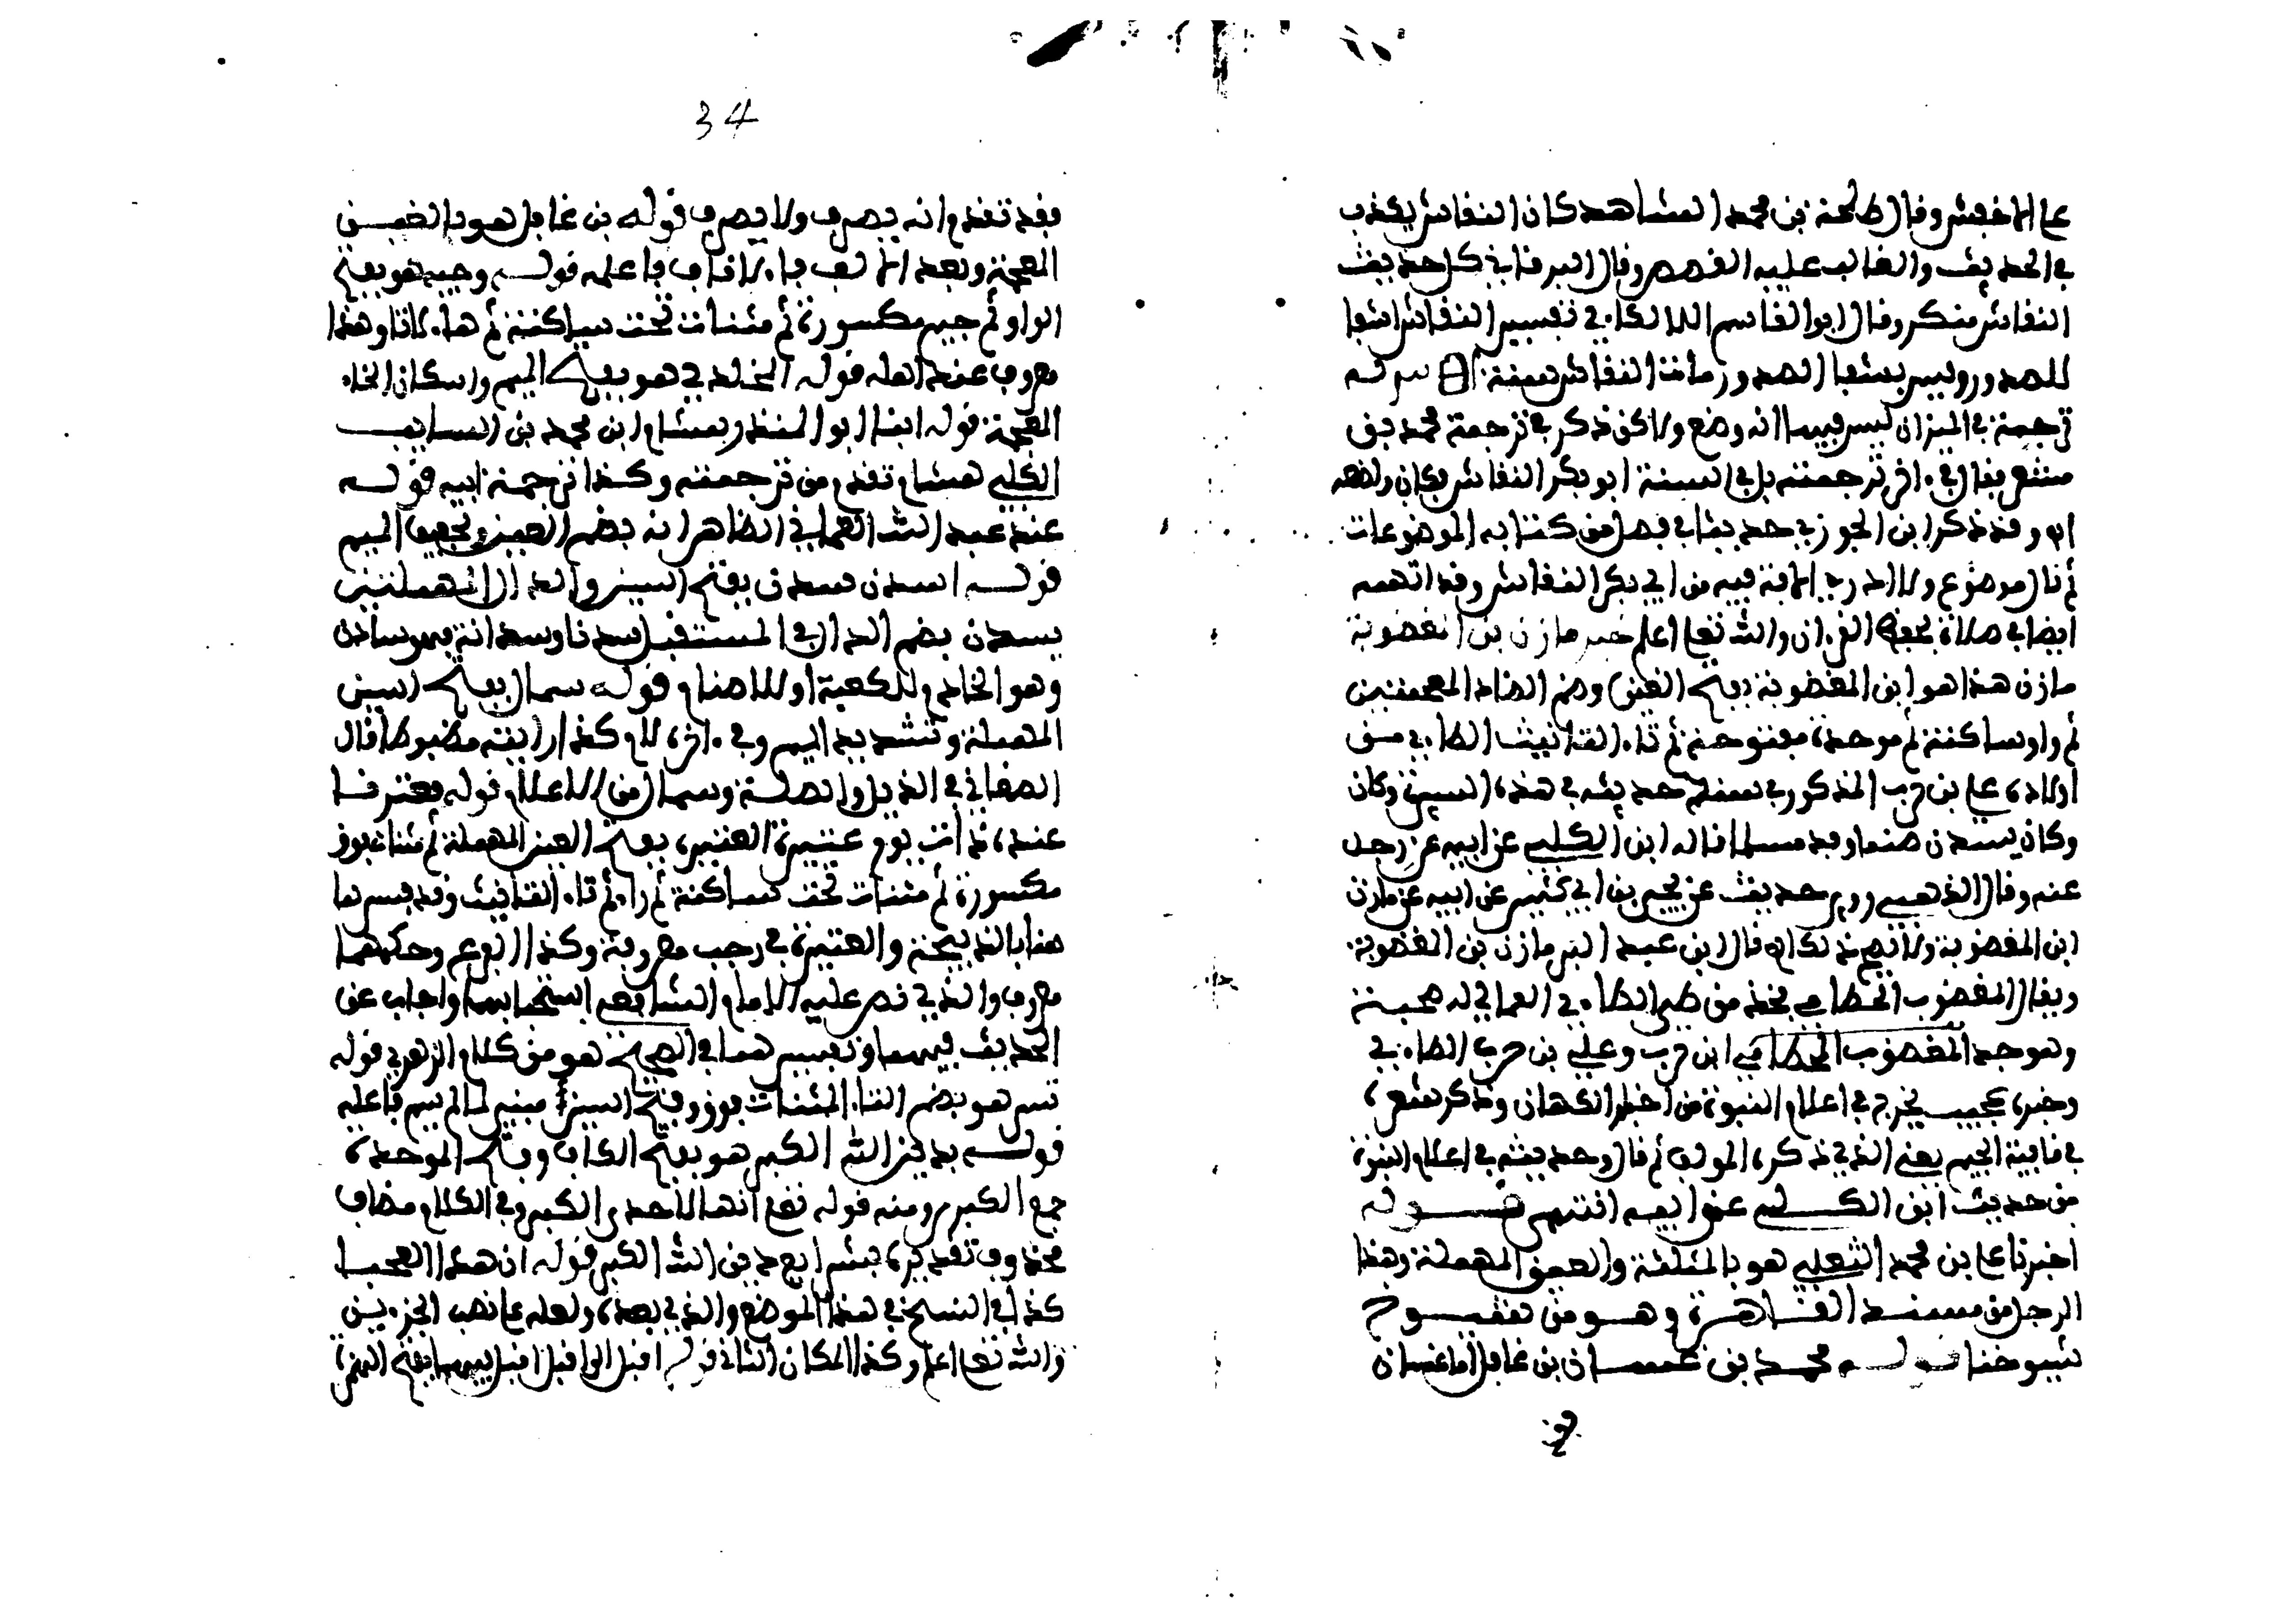 على الاخفش وقال طلحة بن محمد الشاهد كان النقاش يكذب
في الحديث والغالب عليه القصص وقال البرقاني كل حديث
النقاش منكر وقال ابو القاسم اللالكاءي تفسير النقاش اشفا
للصدور وليس بشفا الصدور مات النقاش سنة
ترجمة في الميزان ليس فيها انه وضع ولاكن ذكر في ترجمة محمد بن
مسعر فقال في ءاخر ترجمته بل في السنة ابو بكر النقاش
وقد ذكر ابن الجوزي حديثا في فصل من كتابه الموضوعات
ثم قال موضوع ولا الافة فيه من ابي بكر النقاش وقد اتهمه
ايضا في صلاة لحفظ القرءان والله تعا اعلم خبر مازن بن الغضوبة
مازن هذا هو ابن الغضوبة بفتح الغين وضم الضاد المعجمتين
ثم واو ساكنة ثم موحدة مفتوحة ثم تاء التانيث الطاءي من
اولاده علي بن حرب المذكور في سند حديثه في هذه السيرة وكان
وكان يسدن صنما وفد مسلما قاله ابن الكلبي عن ابيه عن رجل
عنه وقال الذهبي روى حديث عن يحيى بن ابي كثير عن ابيه عن مازن
ابن الغضوبة ولا يصح ذلك قال ابن عبد البر مازن بن الغضوبة
ويقال الغضوب الخطامي فخذ من طي الطاءي العماني له صحبة
وهو جد الخطامي ابن حرب وعلي بن حرب الطاءي
وخبره عجيب يخرج في اعلام النبوة من اخبار الكهان وذكر شعره
في قافية الجيم يعني الذي ذكره المولف ثم قال وحديثه في اعلام النبوة
من حديث ابن الكلبي عن ابيه انتهى قوله
اخبرنا علي بن محمد الثعلبي هو بالمثلثة والعين المهملة وهذا
الرجل من مسند القاهرة وهو من شيوخ
شيوخنا قوله محمد بن غسان بن غافل اما غسان
فقد
34
فقد تقدم انه يصرف ولا يصرف قوله بن غافل هو بالغين
المعجمة وبعد الالف فاء لا قاف فاعلمه قوله وجيه هو بفتح
الواو ثم جيم مكسورة ثم مثناة تحت ساكنة ثم هاء لا تا وهذا
معروف عند اهله قوله المخلدي هو بفتح الميم واسكان الخاء
المعجمة قوله انبا ابو المنذر هشام ابن محمد بن السايب
الكلبي هشام تقدم من ترجمته وكذا ترجمة ابيه قوله
عند عبد الله العماني الظاهر انه بضم العين وتخفيف الميم
قوله اسدن سدن بفتح السين والدال المهملتين
يسدن بضم الدال في المستقبل سدنا وسدانة فهو سادن
وهو الخادم للكعبة او للاصنام قوله سمال بفتح السين
المهملة وتشديد الميم وفي ءاخره لام كذا رايته مضبوطا قال
الصغاني في الذيل والصلة وسمال من الاعلام قوله فعترنا
عنده ذات يوم عتيرة العتيرة بفتح العين المهملة ثم مثناة فوق
مكسورة ثم مثناة تحت ساكنة ثم راء ثم تاء التانيث وقد فسرها
هنا بالذبيحة والعتيرة في رجب معروفة وكذا الفرع وحكمهما
معروف والذي نص عليه الامام الشافعي استحبابهما واجاب عن
الحديث فيهما وتفسيرهما في الصحيح هو من كلام الزهري قوله
تسر هو بضم التاء المثناة فوق وفتح السين مبني لما لم يسم فاعله
قوله بدين الله الكبر هو بفتح الكاف وفتح الموحدة
جمع الكبرى ومنه قوله تعا انها لاحدى الكبر وفي الكلام مضاف
محذوف تقديره بشرايع دين الله الكبر قوله ان هذا العجبا
كذا في النسخ في هذا الموضع والذي بعده ولعله على نصب الجزءين
والله تعا اعلم وكذا المكان الثاني قوله اقبل الي اقبل اقبل فيهما بفتح الهمزة